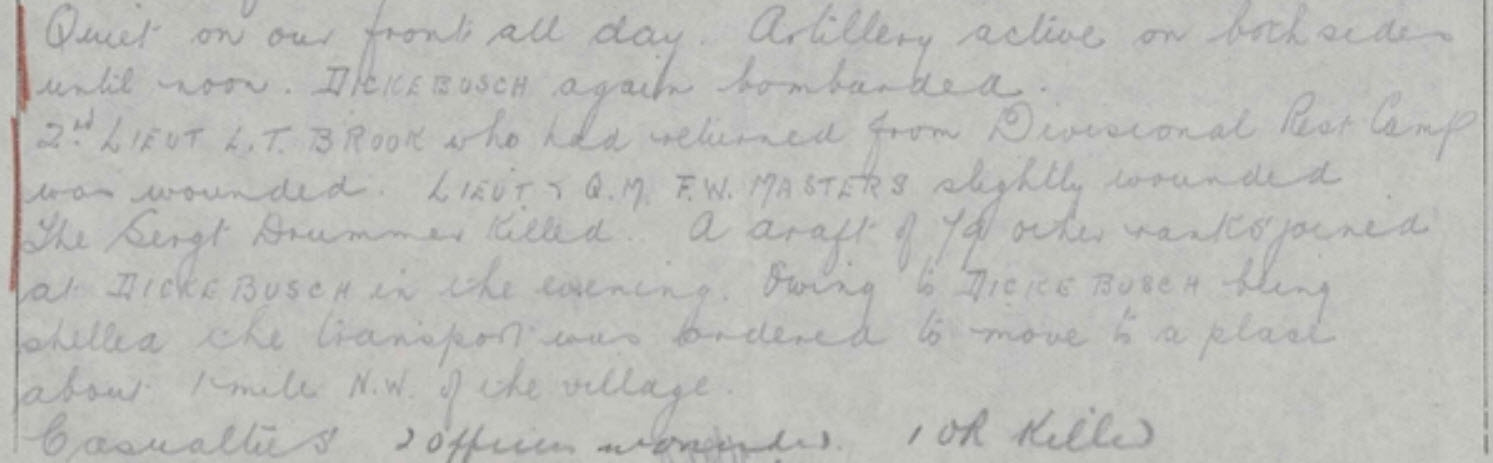 Quiet on our front all day. Artillery active on both sides
until noon. DICKEBUSCH again bombarded.
2nd LIEUT L.T. BROOK who had returned from Divisional Rest Camp
was wounded. LIEUT & Q.M. F.W. MASTERS slightly wounded
The Sergt Drummer killed. A draft of 79 other ranks joined
at DICKEBUSCH in the evening. Owing to DICKEBUSCH being
shelled the transport was ordered to move to a place
about 1 mile N.W. of the village.
Casualties 2 officers wounded. 1 OR Killed